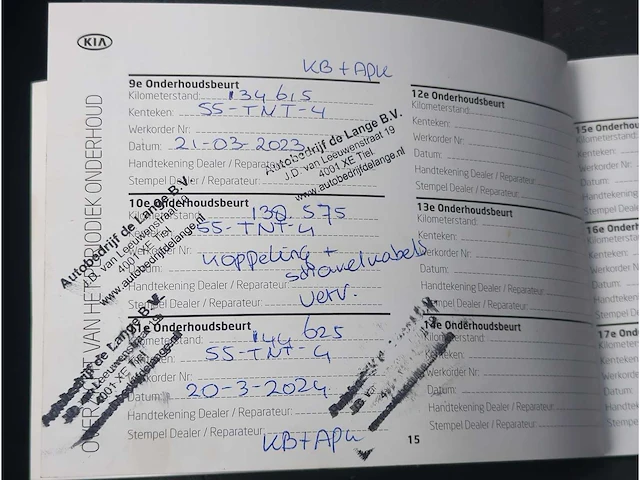 KIA
OVERZICHT VAN HET PERIODIEK ONDERHOUD
KB + APK
9e Onderhoudsbeurt
Kilometerstand: 134 615
Kenteken: 55-TNT-4
Werkorder Nr:
Datum: 21-03-2023
Handtekening Dealer / Reparateur:
Stempel Dealer / Reparateur:
Autobedrijf de Lange B.V.
J.D. van Leeuwenstraat 19
4001 XE Tiel
www.autobedrijfdelange.nl
10e Onderhoudsbeurt
Kilometerstand: 138 575
55-TNT-4
koppeling +
schakelkabels
verv.
Handtekening Dealer / Reparateur:
Stempel Dealer / Reparateur:
Autobedrijf de Lange B.V.
J.D. van Leeuwenstraat 19
4001 XE Tiel
www.autobedrijfdelange.nl
11e Onderhoudsbeurt
Kilometerstand: 144 625
Kenteken: 55-TNT-4
Werkorder Nr:
Datum: 20-3-2024
Handtekening Dealer / Reparateur:
Stempel Dealer / Reparateur:
KB + APK
de Lange B.V.
4001 XE Tiel
15
12e Onderhoudsbeurt
Kilometerstand:
Kenteken:
Werkorder Nr:
Datum:
Handtekening Dealer / Reparateur:
Stempel Dealer / Reparateur:
13e Onderhoudsbeurt
Kilometerstand:
Kenteken:
Werkorder Nr:
Datum:
Handtekening Dealer / Reparateur:
Stempel Dealer / Reparateur:
14e Onderhoudsbeurt
Kilometerstand:
Kenteken:
Werkorder Nr:
Datum:
Handtekening Dealer / Reparateur:
Stempel Dealer / Reparateur:
15e Onderhou
Kilometerstand
Kenteken:
Werkorder
Datum:
Handteken
Stempel De
16e Onder
Kilometers
Kenteken:
Werkorder
Datum:
Handteke
Stempel
17e Onde
Kilomete
Kenteke
Werkord
Datum:
Handte
Stempe